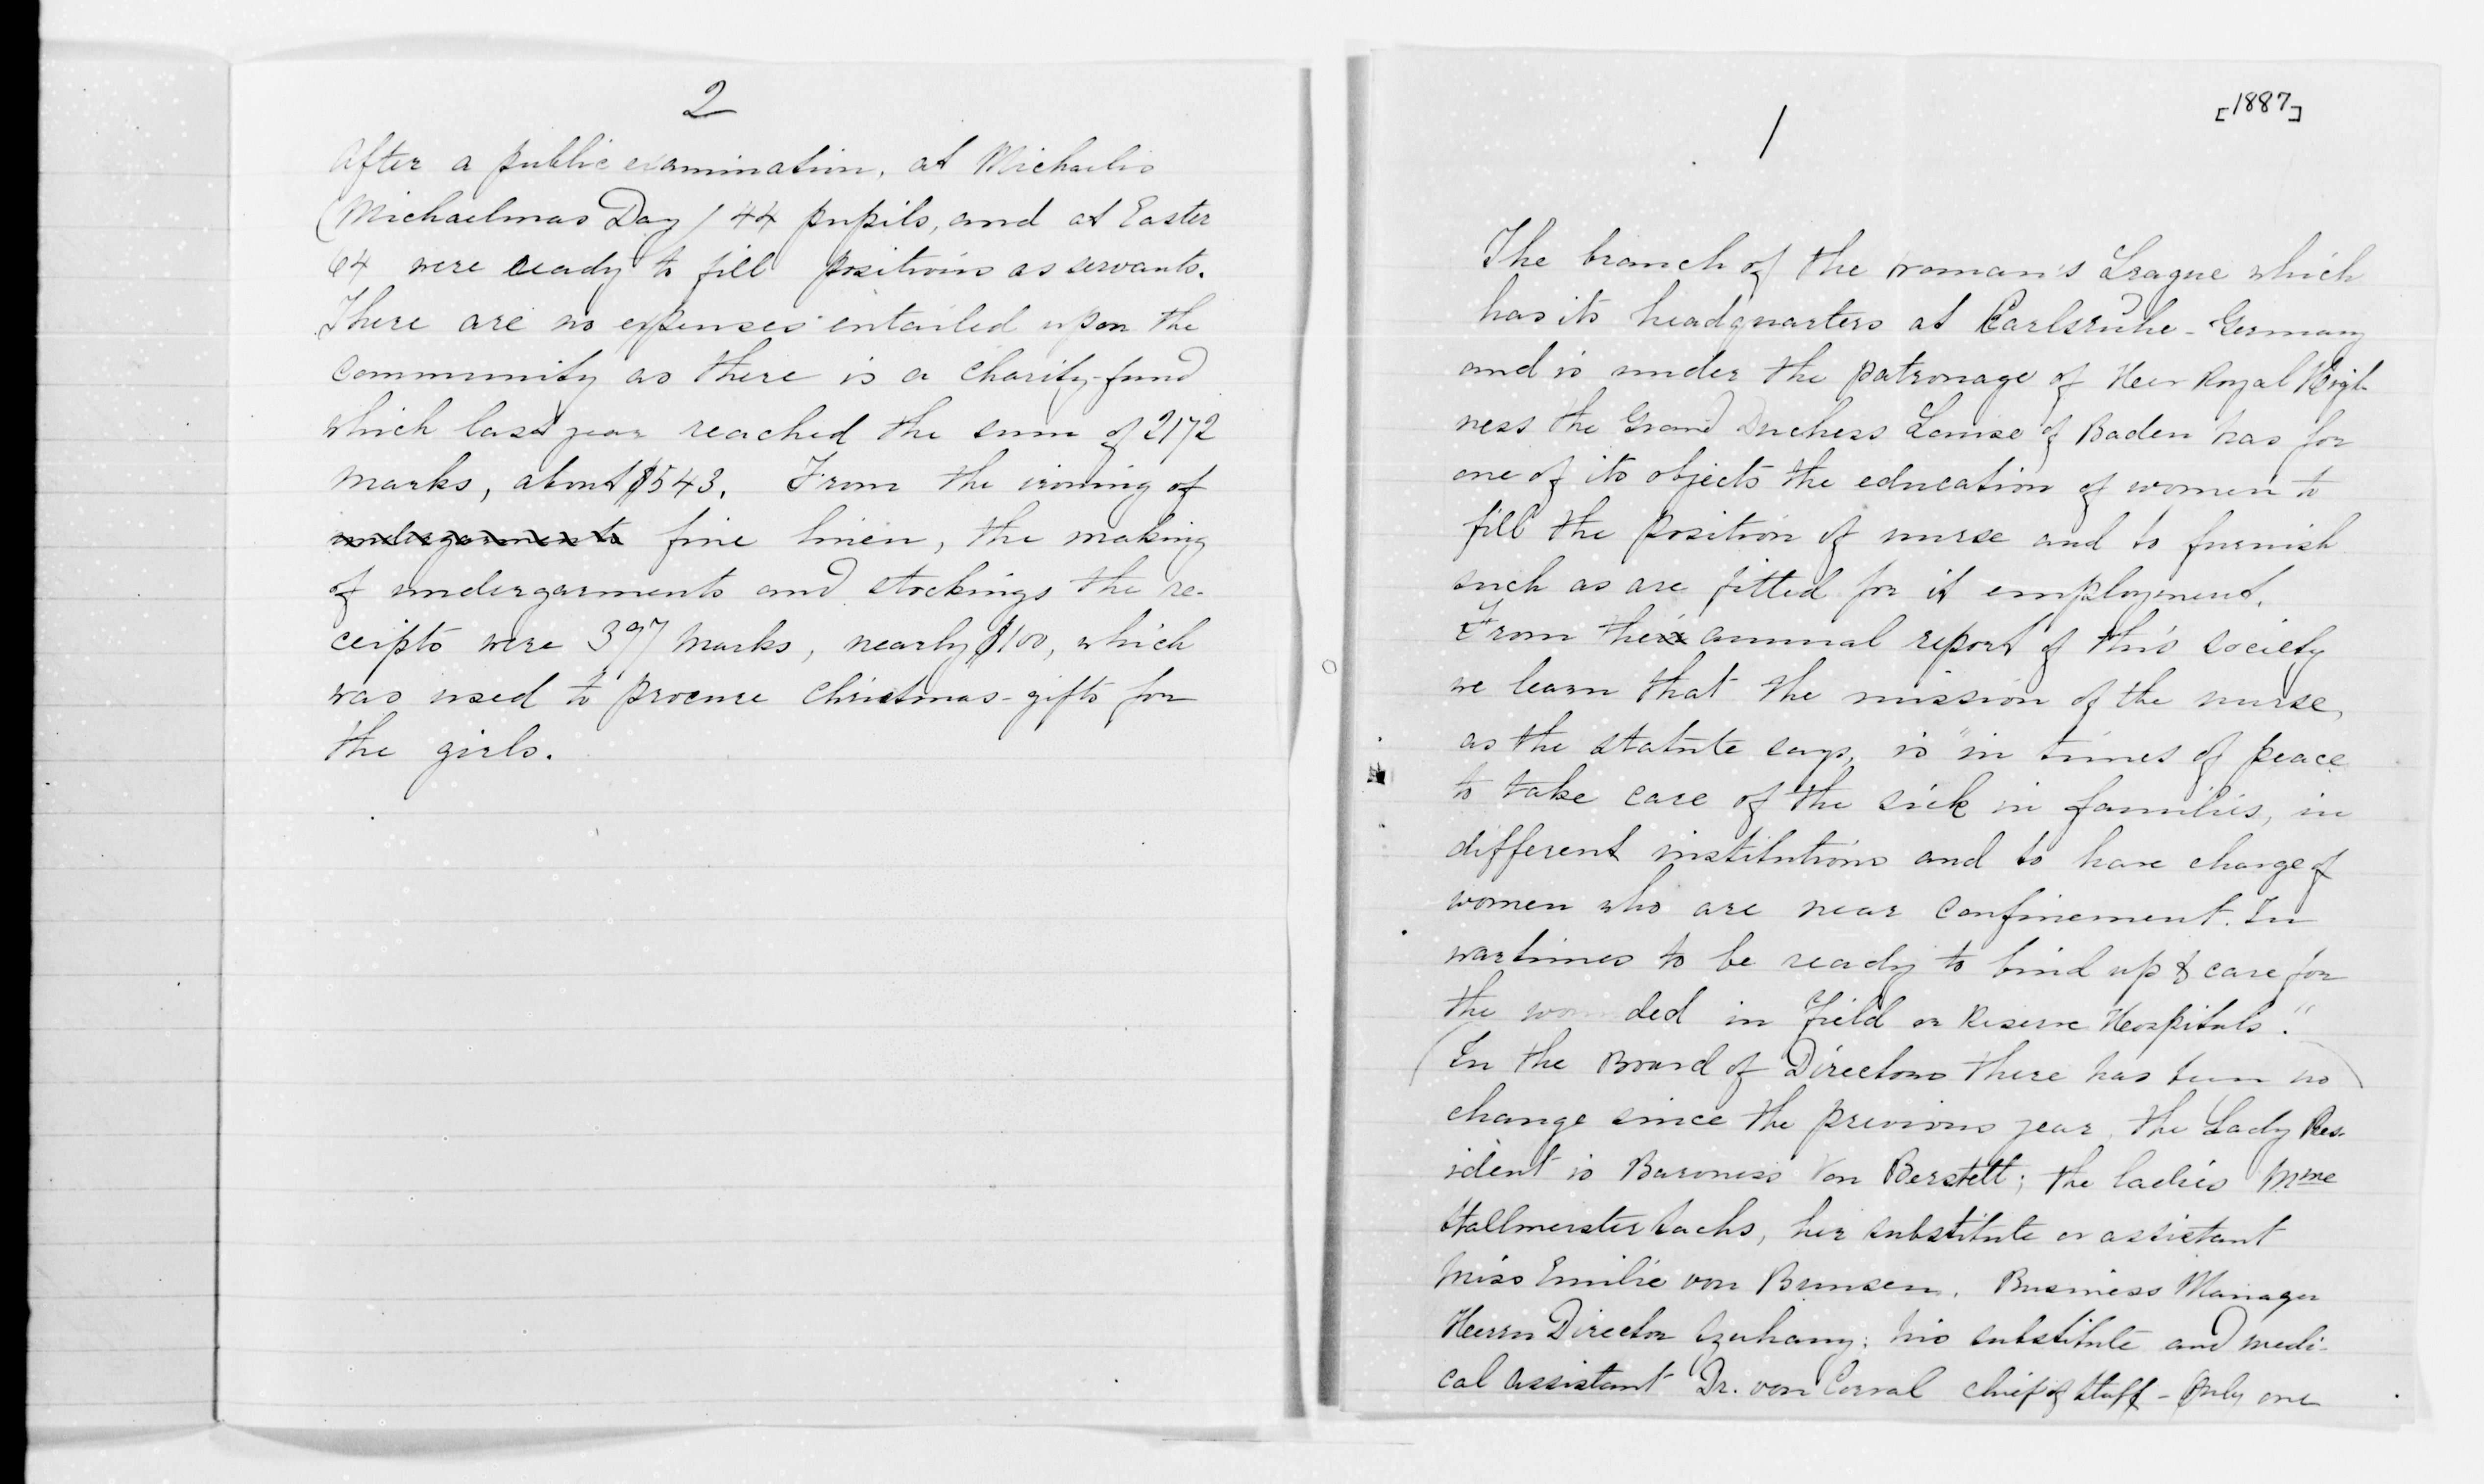 2
After a public examination, at Michaelis
(Michaelmas Day / 44 pupils, and at Easter
64 were ready to fill positions as servants.
There are no expenses entailed upon the
community as there is a charity-fund
which last year reached the sum of 2172
marks, about $543. From the ironing of
undergarments fine linen, the making
of undergarments and stockings the re-
ceipts were 397 marks, nearly $100, which
was used to procure Christmas-gifts for
the girls.
[1887]
1
The branch of the woman's League which
has its headquarters at Carlsruhe - Germany
and is under the patronage of Her Royal High-
ness the Grand Duchess Louise of Baden has for
one of its objects the education of women to
fill the position of nurse and to furnish
such as are fitted for it employment.
From their annual report of this society
we learn that the mission of the nurse,
as the statute says, is "in times of peace
to take care of the sick in families, in
different institutions and to have charge of
women who are near confinement. In
wartimes to be ready to bind up & care for
the wounded in Field or Reserve Hospitals."
(In the Board of Directors there has been no)
change since the previous year, the Lady Res-
ident is Baroness Von Berstett; the ladies Mme
Stallmeister Sachs, her substitute or assistant
Miss Emilie von Bunsen. Business Manager
Herrn Director his substitute and medi-
cal assistant Dr. von Corval chief of staff - Only one